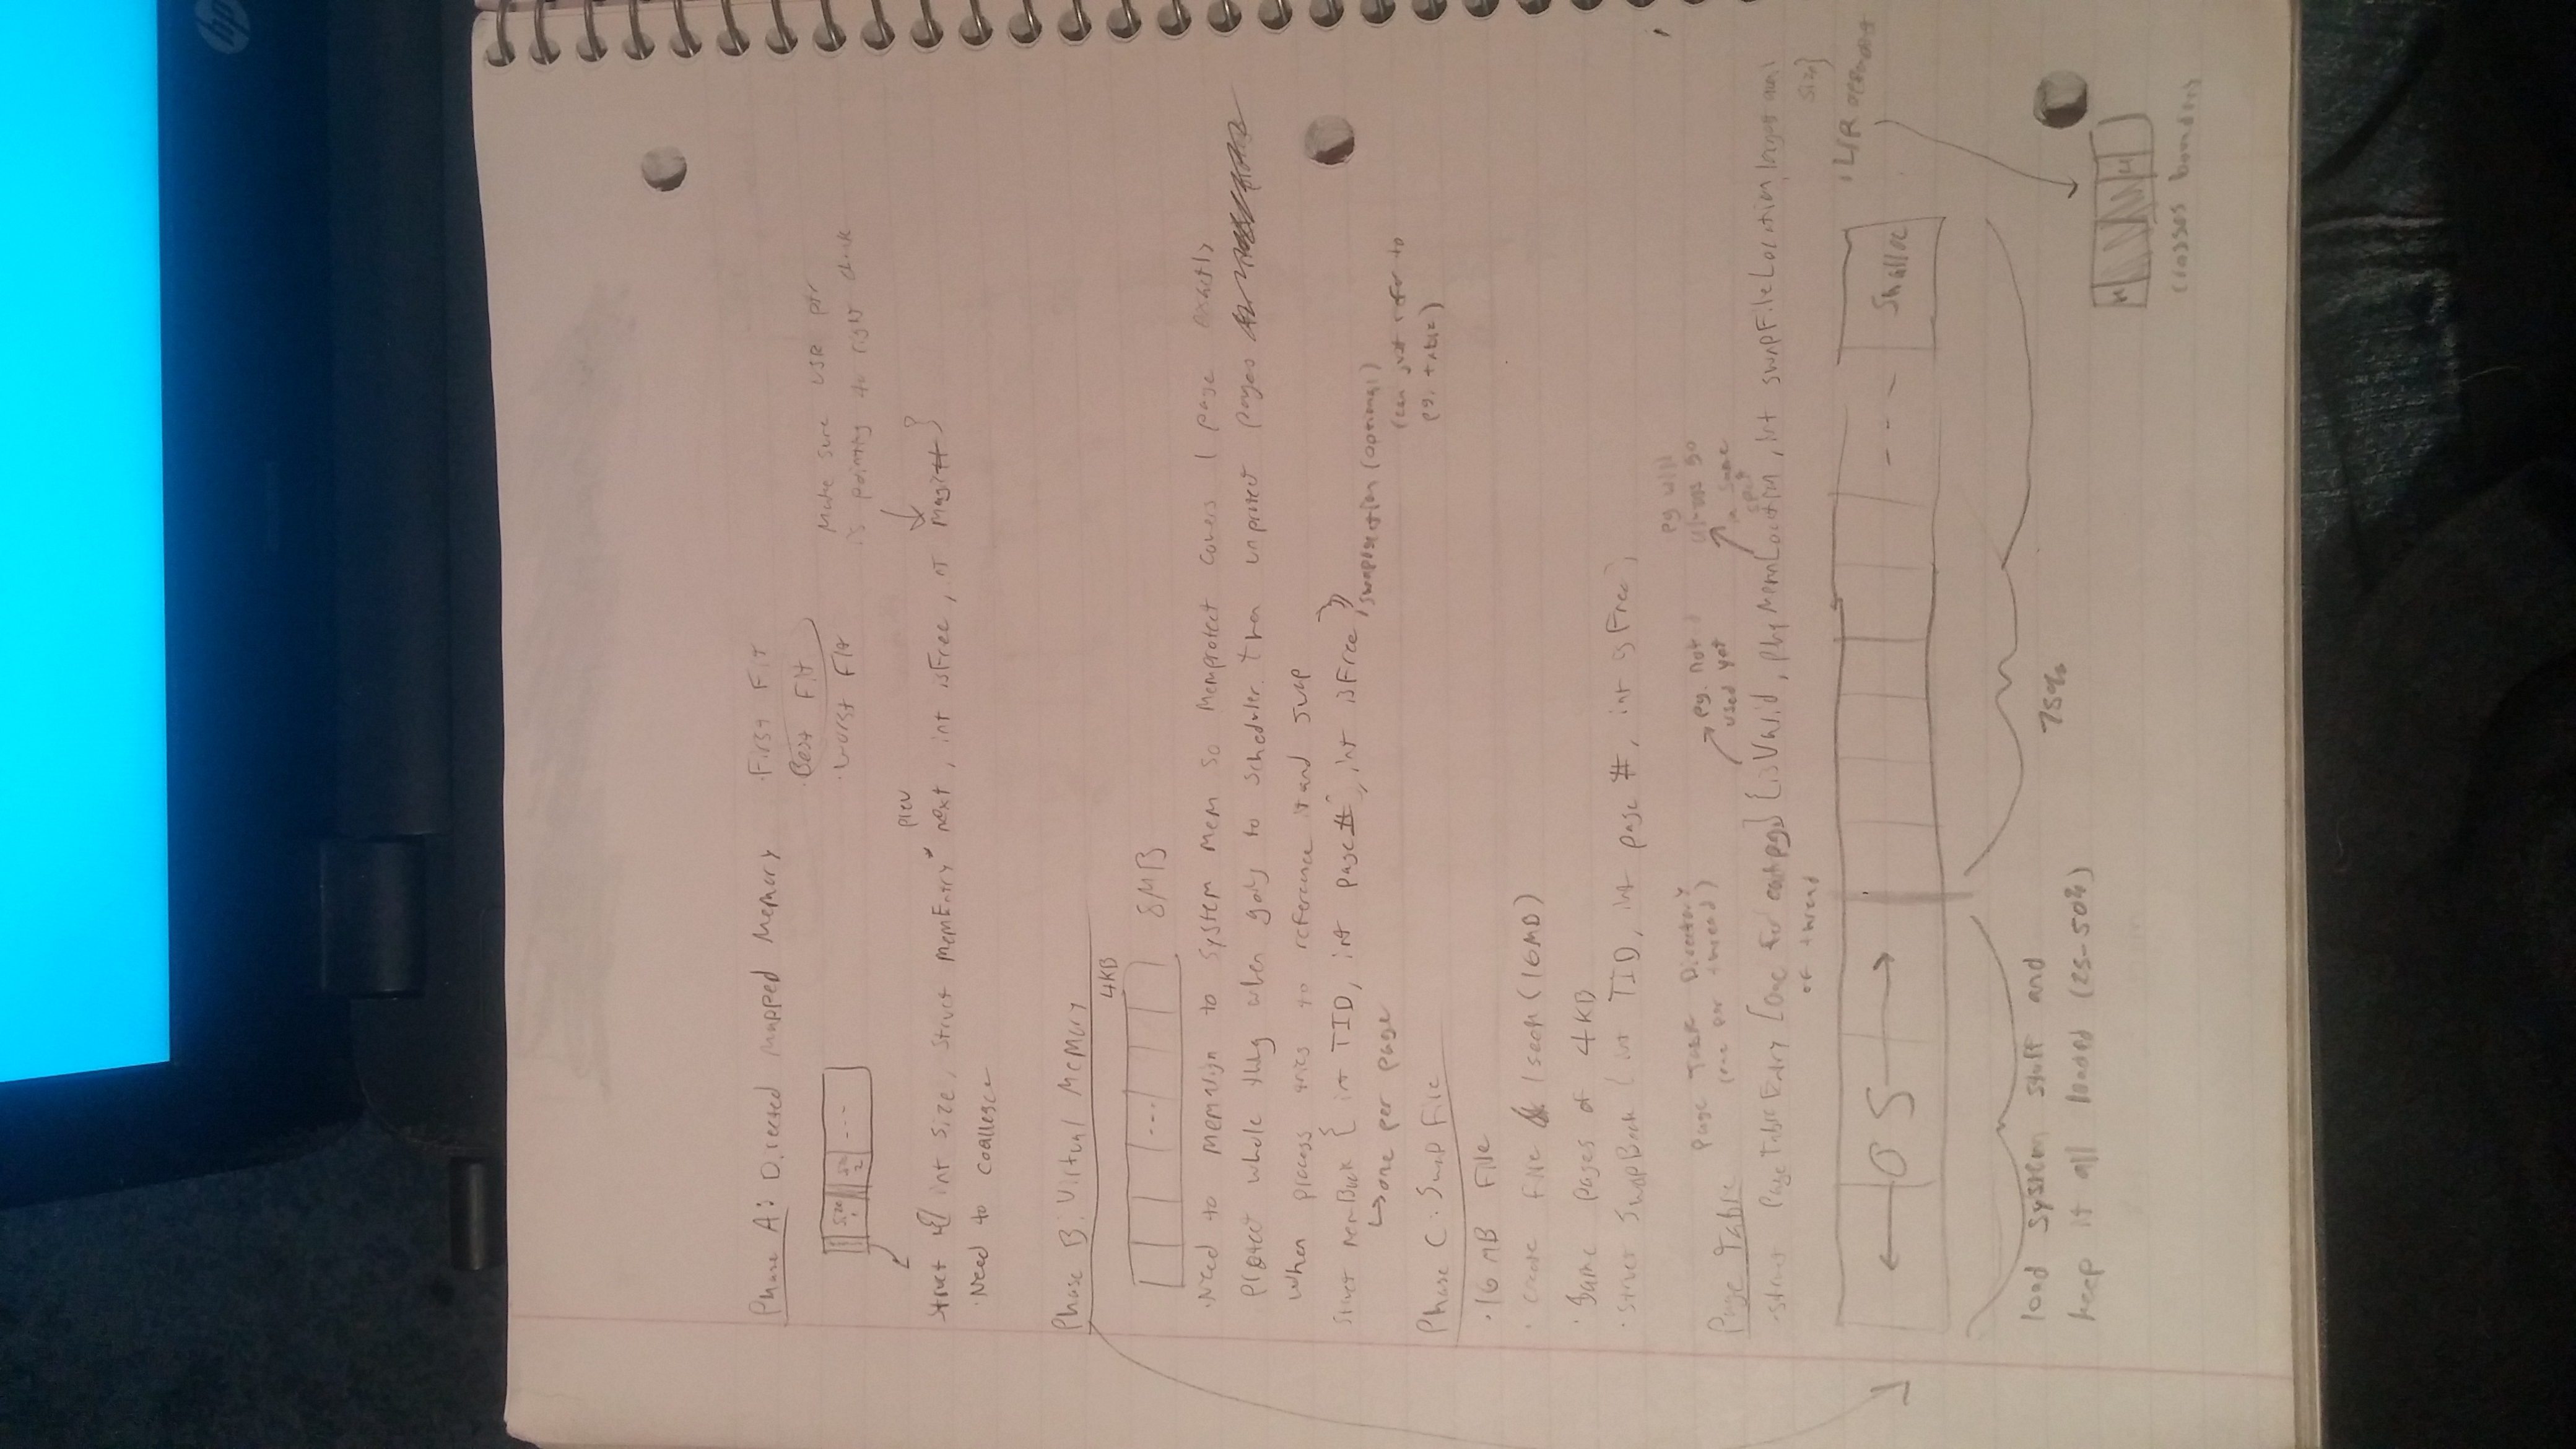 hp
Phase A: Directed Mapped Memory
· First Fit
· Best Fit
· Worst Fit
Make sure USR ptr
is pointing to right chunk
size
1
size
2
---
prev
struct { int size, struct memEntry* next, int isFree, Magic# }
· Need to coallesce
Phase B: Virtual Memory
4KB
--- 8MB
· Need to memalign to system mem so Memprotect covers 1 page exactly
protect whole thing when going to scheduler. then unprotect pages
when process tries to reference it and swap
struct memBook { int TID, int page #, int isFree }
, swaplocation (optional)
↳ one per page
(can just refer to
pg. table)
Phase C: Swap File
· 16 MB File
· create file lseek (16MB)
· Same pages of 4KB
· struct SwapBook { int TID, int page #, int isFree }
Page Table Directory
(one per thread)
pg. not
used yet
pg will
always go
n same
spot
Page Table
· struct PageTableEntry [one for each pg] {isValid, phyMemLocation, int swapFileLocation, largest avail
of thread
size}
OS
---
Shalloc
load system stuff and
keep it all loaded (25-50%)
75%
crosses borders